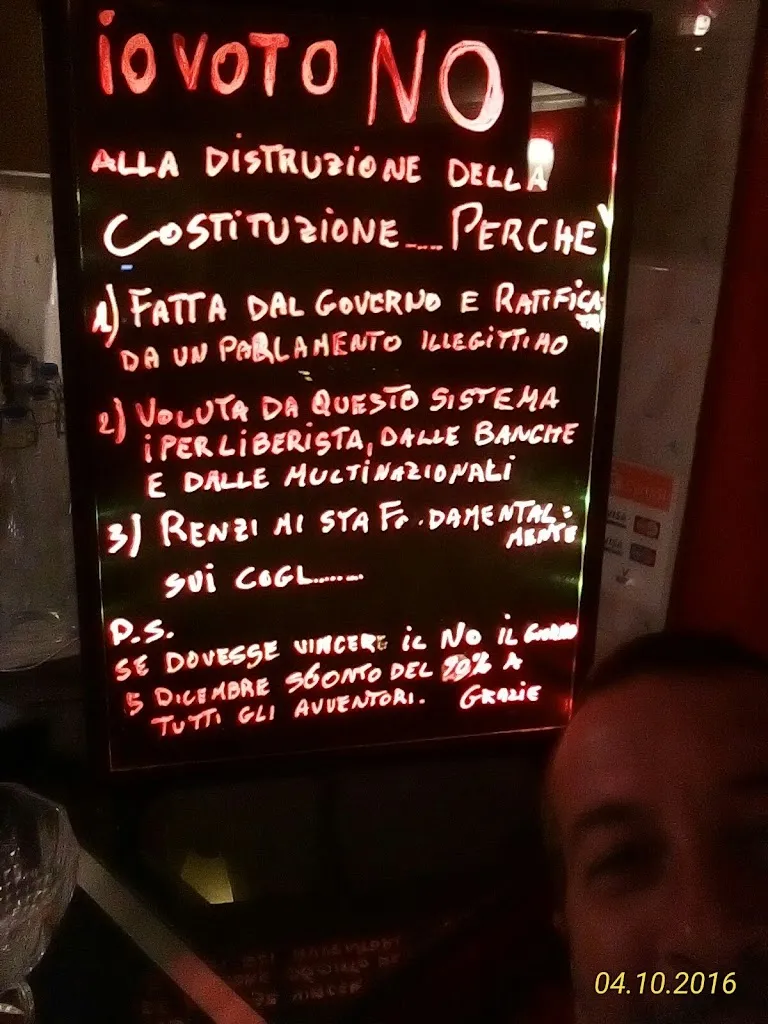 iO VOTO NO
ALLA DISTRUZIONE DELLA
COSTITUZIONE.... PERCHE'
1) FATTA DAL GOVERNO E RATIFICA
TA
DA UN PARLAMENTO ILLEGITTIMO
2) VOLUTA DA QUESTO SISTEMA
iPERLIBERISTA, DALLE BANCHE
E DALLE MULTINAZIONALI
3) RENZI MI STA Fo.DAMENTAL=
MENTE
SUI COGL.......
P.S.
SE DOVESSE VINCERE iL NO IL GIORNO
5 DICEMBRE SCONTO DEL 20% A
TUTTI GLI AVVENTORI. GRAZIE
VISA
04.10.2016